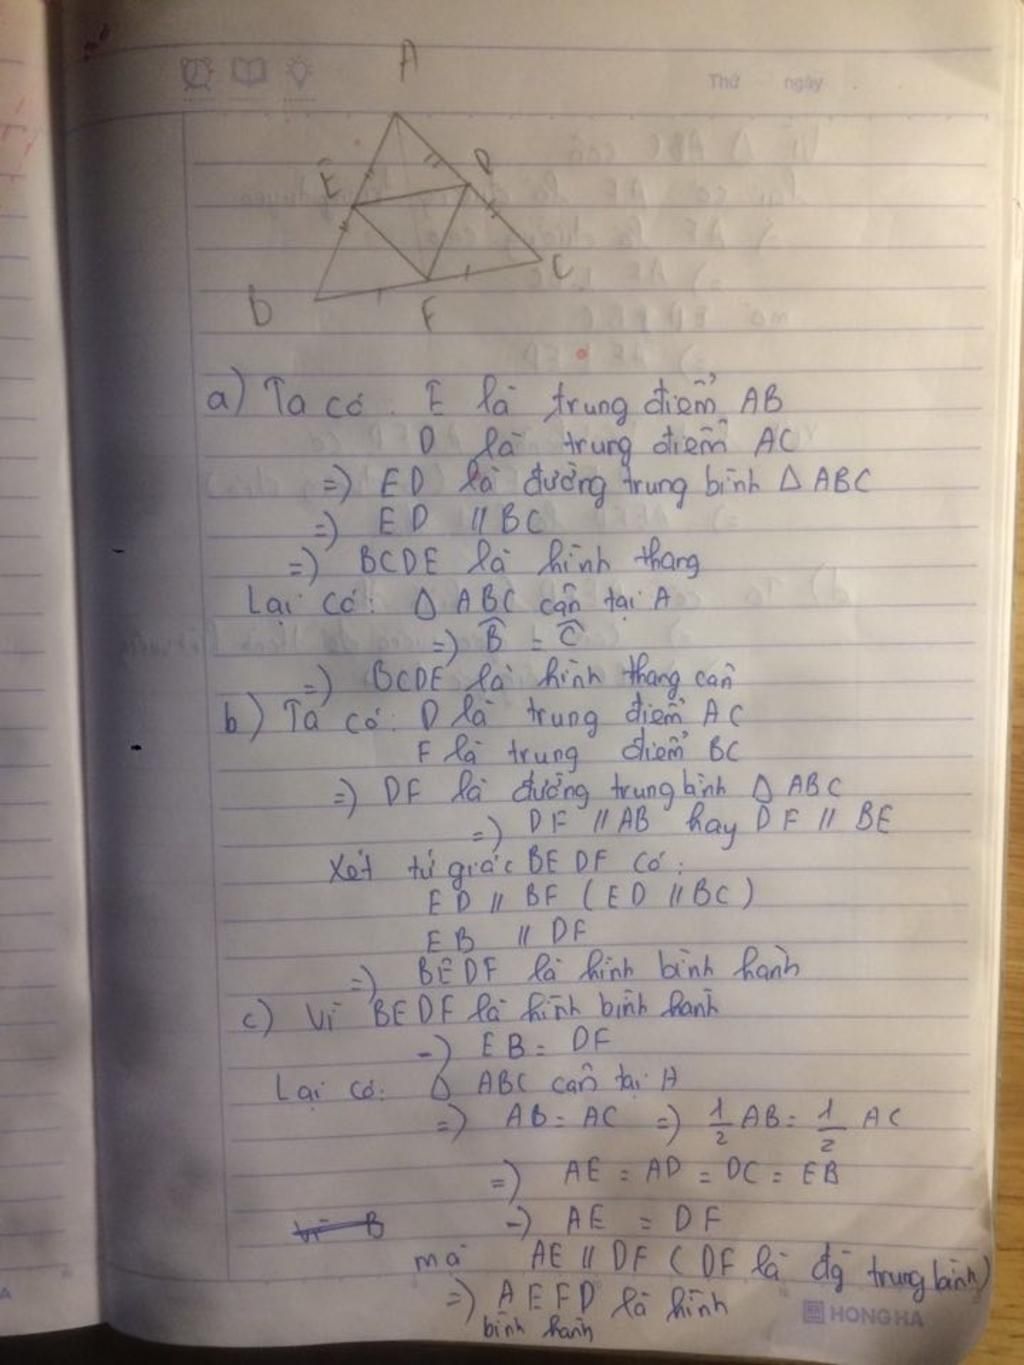 Thứ ngày
A
E D
B F C
a) Ta có: E là trung điểm AB
D là trung điểm AC
=) ED là đường trung bình Δ ABC
=) ED // BC
=) BCDE là hình thang
Lại có: Δ ABC cân tại A
=) B̂ = Ĉ
=) BCDE là hình thang cân
b) Ta có: D là trung điểm AC
F là trung điểm BC
=) DF là đường trung bình Δ ABC
=) DF // AB hay DF // BE
Xét tứ giác BEDF có:
ED // BF (ED // BC)
EB // DF
=) BEDF là hình bình hành
c) Vì BEDF là hình bình hành
=) EB = DF
Lại có: Δ ABC cân tại A
=) AB = AC =) 1/2 AB = 1/2 AC
=) AE = AD = DC = EB
=) AE = DF
mà AE // DF (DF là đg trung bình)
=) AEFD là hình
bình hành
HONG HA